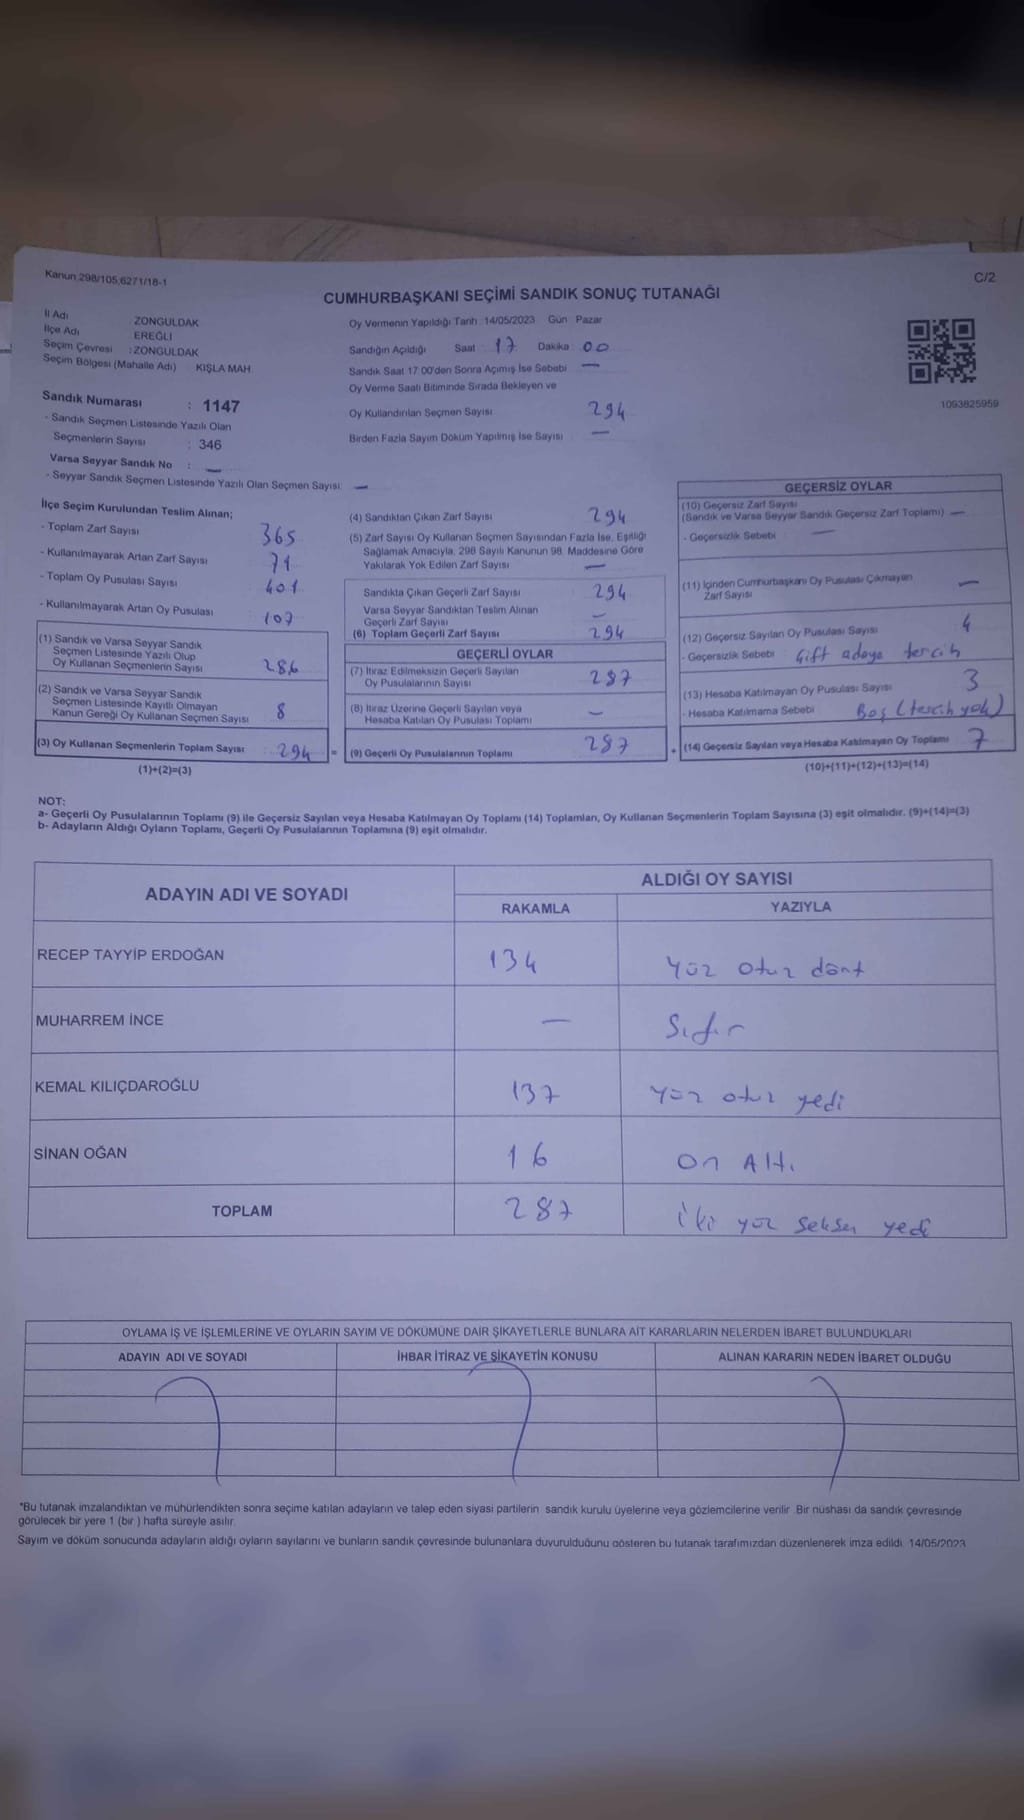 Kanun 298/105,6271/18-1
C/2
CUMHURBAŞKANI SEÇİMİ SANDIK SONUÇ TUTANAĞI
İl Adı : ZONGULDAK
İlçe Adı : EREĞLİ
Seçim Çevresi : ZONGULDAK
Seçim Bölgesi (Mahalle Adı) KIŞLA MAH
Sandık Numarası : 1147
- Sandık Seçmen Listesinde Yazılı Olan
Seçmenlerin Sayısı : 346
Varsa Seyyar Sandık No : —
- Seyyar Sandık Seçmen Listesinde Yazılı Olan Seçmen Sayısı: —
Oy Vermenin Yapıldığı Tarih 14/05/2023 Gün Pazar
Sandığın Açıldığı Saat 17 Dakika 00
Sandık Saat 17 00'den Sonra Açımış İse Sebebi —
Oy Verme Saati Bitiminde Sırada Bekleyen ve
Oy Kullandırılan Seçmen Sayısı 294
Birden Fazla Sayım Döküm Yapılmış İse Sayısı —
1093825959
İlçe Seçim Kurulundan Teslim Alınan;
- Toplam Zarf Sayısı 365
- Kullanılmayarak Artan Zarf Sayısı 71
- Toplam Oy Pusulası Sayısı 401
- Kullanılmayarak Artan Oy Pusulası 107
(1) Sandık ve Varsa Seyyar Sandık
Seçmen Listesinde Yazılı Olup
Oy Kullanan Seçmenlerin Sayısı 286
(2) Sandık ve Varsa Seyyar Sandık
Seçmen Listesinde Kayıtlı Olmayan
Kanun Gereği Oy Kullanan Seçmen Sayısı 8
(3) Oy Kullanan Seçmenlerin Toplam Sayısı 294 =
(1)+(2)=(3)
(4) Sandıktan Çıkan Zarf Sayısı 294
(5) Zarf Sayısı Oy Kullanan Seçmen Sayısından Fazla İse, Eşitliği
Sağlamak Amacıyla, 298 Sayılı Kanunun 98. Maddesine Göre
Yakılarak Yok Edilen Zarf Sayısı —
Sandıkta Çıkan Geçerli Zarf Sayısı 294
Varsa Seyyar Sandıktan Teslim Alınan
Geçerli Zarf Sayısı —
(6) Toplam Geçerli Zarf Sayısı 294
GEÇERLİ OYLAR
(7) İtiraz Edilmeksizin Geçerli Sayılan
Oy Pusulalarının Sayısı 287
(8) İtiraz Üzerine Geçerli Sayılan veya
Hesaba Katılan Oy Pusulası Toplamı —
(9) Geçerli Oy Pusulalarının Toplamı 287 +
GEÇERSİZ OYLAR
(10) Geçersiz Zarf Sayısı
(Sandık ve Varsa Seyyar Sandık Geçersiz Zarf Toplamı) —
- Geçersizlik Sebebi —
(11) İçinden Cumhurbaşkanı Oy Pusulası Çıkmayan
Zarf Sayısı —
(12) Geçersiz Sayılan Oy Pusulası Sayısı 4
- Geçersizlik Sebebi Çift adaya tercih
(13) Hesaba Katılmayan Oy Pusulası Sayısı 3
- Hesaba Katılmama Sebebi Boş (tercih yok)
(14) Geçersiz Sayılan veya Hesaba Katılmayan Oy Toplamı 7
(10)+(11)+(12)+(13)=(14)
NOT:
a- Geçerli Oy Pusulalarının Toplamı (9) ile Geçersiz Sayılan veya Hesaba Katılmayan Oy Toplamı (14) Toplamları, Oy Kullanan Seçmenlerin Toplam Sayısına (3) eşit olmalıdır. (9)+(14)=(3)
b- Adayların Aldığı Oyların Toplamı, Geçerli Oy Pusulalarının Toplamına (9) eşit olmalıdır.
ADAYIN ADI VE SOYADI
ALDIĞI OY SAYISI
RAKAMLA YAZIYLA
RECEP TAYYİP ERDOĞAN 134 Yüz otuz dört
MUHARREM İNCE — Sıfır
KEMAL KILIÇDAROĞLU 137 Yüz otuz yedi
SİNAN OĞAN 16 On Altı
TOPLAM 287 İki yüz seksen yedi
OYLAMA İŞ VE İŞLEMLERİNE VE OYLARIN SAYIM VE DÖKÜMÜNE DAİR ŞİKAYETLERLE BUNLARA AİT KARARLARIN NELERDEN İBARET BULUNDUKLARI
ADAYIN ADI VE SOYADI İHBAR İTİRAZ VE ŞİKAYETİN KONUSU ALINAN KARARIN NEDEN İBARET OLDUĞU
*Bu tutanak imzalandıktan ve mühürlendikten sonra seçime katılan adayların ve talep eden siyasi partilerin sandık kurulu üyelerine veya gözlemcilerine verilir. Bir nüshası da sandık çevresinde
görülecek bir yere 1 (bir ) hafta süreyle asılır.
Sayım ve döküm sonucunda adayların aldığı oyların sayılarını ve bunların sandık çevresinde bulunanlara duyurulduğunu gösteren bu tutanak tarafımızdan düzenlenerek imza edildi. 14/05/2023